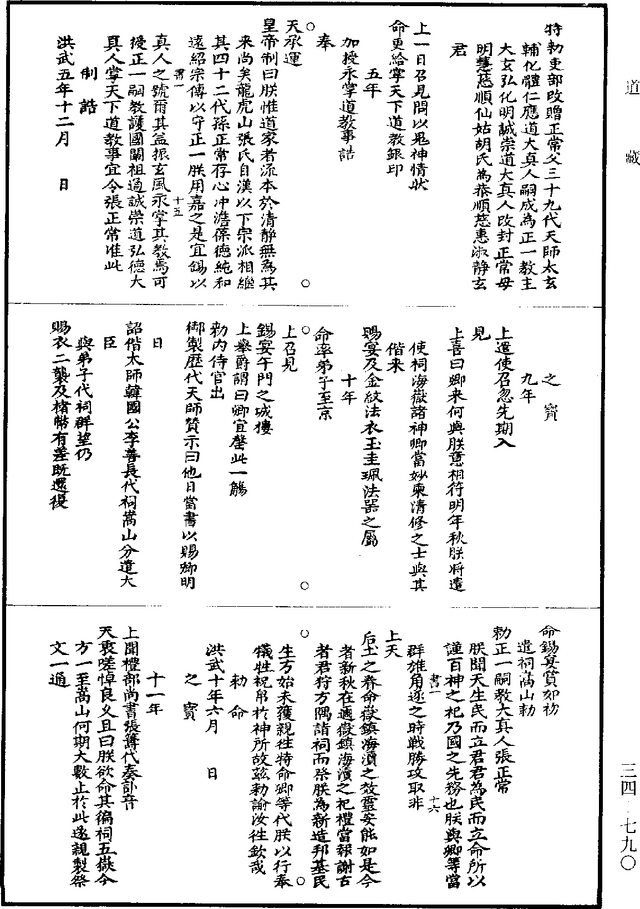 道藏
特勑吏部改贈正常父三十九代天師太玄
輔化體仁應道大真人嗣成為正一教主
大玄弘化明誠崇道大真人改封正常母
明慧慈順仙姑胡氏為恭順慈惠淑静玄
君
上一日召見問以鬼神情狀
命更給掌天下道教銀印
五年
加授永掌道教事誥
奉
天承運
皇帝制曰朕惟道家者流本於清静無為其
来尚矣龍虎山張氏自漢以下宗派相繼
其四十二代孫正常存心冲澹葆德純和
遠紹宗傳以守正一朕用嘉之是宜錫以
書一 十五
真人之號爾其益振玄風永掌其教焉可
授正一嗣教護國闡祖通誠崇道弘德大
真人掌天下道教事宜令張正常准此
制誥
洪武五年十二月 日
之寳
九年
上遣使召忽先期入
見
上喜曰卿来何與朕意相符明年秋朕将遣
使祠海嶽諸神卿當妙柬清修之士與其
偕来
賜宴及金紋法衣玉圭珮法器之屬
十年
命率弟子至京
上召見
錫宴午門之城樓
上舉爵謂曰卿宜罄此一觴
勑内侍官出
御製歷代天師贊示曰他日當書以賜卿明
日
詔偕太師韓國公李善長代祠嵩山分遣大
臣
與弟子代祠群望仍
賜衣二襲及楮幣有差既還復
命錫宴賞如初
遣祠嵩山勑
勑正一嗣教大真人張正常
朕聞天生民而立君君為民而立命所以
謹百神之祀乃國之先務也朕與卿等當
書一 十六
群雄角逐之時戰勝攻取非
上天
后土之眷命嶽鎮海瀆之效靈安能如是今
者新秋在邇嶽鎮海瀆之祀禮當報謝古
者君狩方隅諸祠而祭朕為新造邦基民
生方始未獲親往特命卿等代朕以行奉
犧牲祝帛於神所故茲勑諭汝往欽哉
勑命
洪武十年六月 日
之寳
十一年
上聞禮部尚書張籌代奏訃音
天衷嗟悼良久且曰朕欲命其徧祠五嶽今
方一至嵩山何期大數止於此遂親製祭
文一通
三四·七九〇